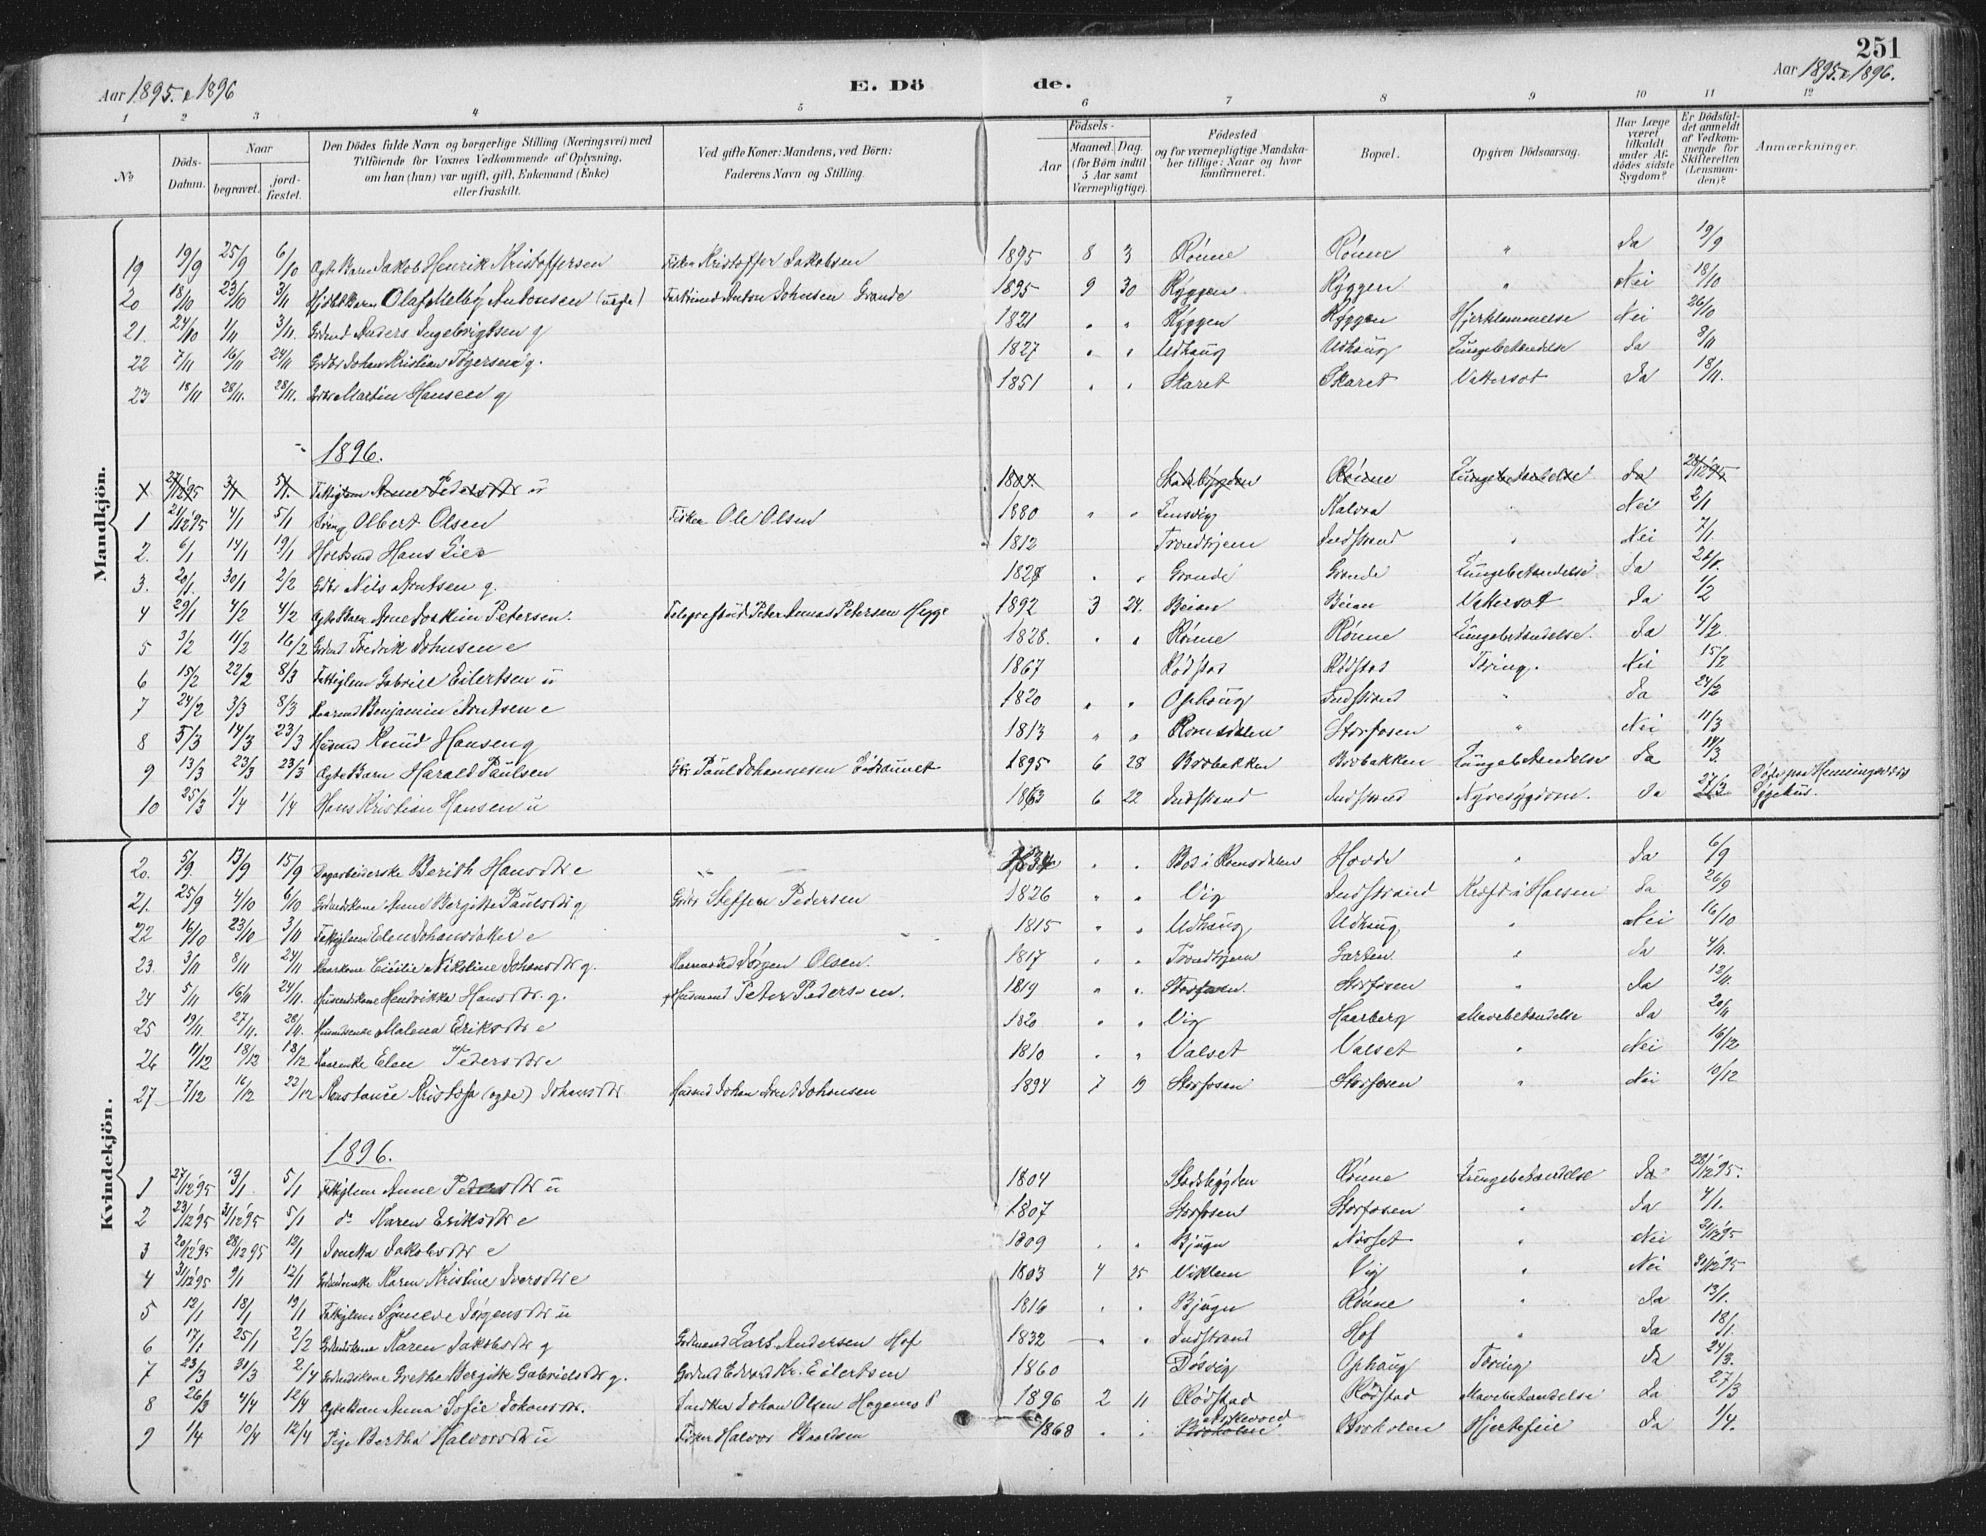 251
Aar 1895. & 1896
E. Dö de.
Aar 1895. & 1896.
1 2 3 4 5 6 7 8 9 10 11 12
No
Döds-Datum.
Naar
begravet.
jord-fæstet.
Den Dödes fulde Navn og borgerlige Stilling (Næringsvei) med Tilföiende for Voxnes Vedkommende af Oplysning, om han (hun) var ugift, gift, Enkemand (Enke) eller fraskilt.
Ved gifte Koner: Mandens, ved Börn: Faderens Navn og Stilling.
Födsels-
Aar
Maaned. Dag.
(for Börn indtil 5 Aar samt Værnepligtige).
Födested og for værnepligtige Mandskaber tillige: Naar og hvor konfirmeret.
Bopæl.
Opgiven Dödsaarsag.
Har Læge været tilkaldt under Afdödes sidste Sygdom?
Er Dödsfaldet anmeldt af Vedkommende for Skifteretten (Lensmanden)?
Anmærkninger.
Mandkjön.
19 19/9 25/9 6/10 Ægte Barn Jakob Henrik Kristoffersen Fisker Kristoffer Jakobsen 1895 8 3 Rönne Rönne " Ja 19/9
20 18/10 23/10 3/11 Olaf Melby Antonsen (uægte) Anton Johnsen Grande 1895 9 30 Ryggen Ryggen " Nei 18/10
21. 24/10 1/11 3/11 Anders Ingebrigtsen g 1821 " " Ryggen Ryggen Hjertelammelse Nei 26/10
22 7/11 16/11 24/11 Johan Kristian g. 1827 " " Udhaug Udhaug Lungebetændelse Ja 8/11
23 18/11 28/11. 28/11. Martin Hansen g 1851 " " Skaret Skaret Vattersot Ja 18/11.
1896.
x 27/12 95 3/1 5/1. Fattiglem Anne Pedersdtr u 1804 Stadsbygden Rönne Lungebetændelse Ja 28/12 95
1 21/12 95 4/1 5/1 Albert Olsen Fisker Ole Olsen 1880 " " Lensvig Kalvaa " Nei 2/1
2. 6/1 14/1 19/1 Hans Lier 1812 Trondhjem Indstrand " Nei 7/1.
3. 20/1. 30/1 2/2 Gdbr Nils Arntsen g. 1828 " " Grande Grande Lungebetændelse Ja
4 29/1 4/2 4/2 Ægte Barn Arne Joakim Petersen. Petersen Hegge 1892 3 24. Beian Beian Vattersot Ja 1/2
5 3/2 11/2 16/2 Fredrik Johnsen e 1828. " " Rönne Rönne Lungebetændelse. Ja 4/2
6 15/2 22/2 8/3 Fattiglem Gabriel Eilertsen u 1867 Rödstad Rödstad Tæring. Nei 15/2
7 24/2 3/3 8/3 Benjamin Arntsen e 1820 " " Ophaug Indstrand " Ja 24/2
8 5/3 14/3 23/3 Husmd Knud Hansen g 1813 " " Romsdalen Storfosen " Nei 11/3
9 13/3 23/3 23/3 Ægte Barn Harald Paulsen Gbr Paul Johannesen 1895 6 28 Borbakken Borbakken Lungebetændelse Ja 14/3.
10 25/3 1/4 1/4 Hans Kristian Hansen u 1863 6 22 Indstrand Indstrand Nyresygdom. Ja 27/3 Döde paa Sygehus.
Kvindekjön.
20. 5/9. 13/9 15/9 Berith Hansdtr e " " Bos i Romsdalen Hovde " Ja 6/9
21. 25/9 4/10 6/10 Anne Bergitte Paulsdtr g Gdbr Steffen Pedersen 1826 " " Vig Indstrand Kræft i Halsen Ja 26/9
22 16/10 23/10 3/11 Fattiglem Elen Johansdatter e 1815 " " Udhaug Udhaug " Nei 16/10
23. 3/11 8/11 24/11 Nikoline Johansdtr g. Jörgen Olsen. 1817 " " Trondhjem Garten " Ja 4/11.
24 5/11 16/11 24/11. Husmdskone Hendrikke Hansdtr. g. Husmand Peter Pedersen. 1819 " " Storfosen. Storfosen " Ja 12/11.
25 19/11 27/11. 28/11. Malena Eriksdtr e 1820 " " Vig Haarberg Mavebetændelse Ja 20/11
26 11/12 18/12 18/12 Elen Pedersdtr e 1810 " " Valset Valset " Nei 16/12
27 7/12 16/12 22/12 Konstance Kristofa (ægte) Johansdtr Husmd Johan Arnt Johansen 1894 7 19 Storfosen Storfosen " Nei 10/12
1896.
1 27/12 95 3/1. 5/1 Fattiglem Anne Pedersdtr u 1804 Stadsbygden Rönne Lungebetændelse Ja 28/12 95.
2 23/12 95 31/12 95 5/1 do Karen Eriksdtr e 1807 Storfosen Storfosen " Ja 4/1.
3 20/12 95 28/12 95 12/1 Jakobsdtr e 1809 " " Bjugn Nörset " Nei 21/12 95
4 31/12 95 9/1 12/1 Karen Kristine Iversdtr e 1803 4 25 Viklem Vig " Nei 31/12 95
5 12/1 18/1 19/1 Fattiglem Jörgensdtr u 1816 " " Bjugn Rönne " Ja 13/1.
6 17/1 25/1 2/2 Karen Jakobsdtr g Gdmand Lars Andersen Hof 1832 " " Indstrand Hof " Ja 18/1.
7 23/3 30/3 2/4 Grethe Bergitte Gabrielsdtr g. Edvard Kr. Eilertsen 1860 Dösvig Ophaug Tæring Ja 24/3.
8 26/3 4/4 12/4 Ægte Barn Anna Sofie Johansdtr. Johan Olsen 1896 2 11 Rödstad Rödstad Mavebetændelse Ja 27/3
9 1/4 10/4 12/4 Pige Bertha Halvorsdtr u Fisker Halvor Baardsen 1868 " " Borholen Hjertefeil Ja 1/4.